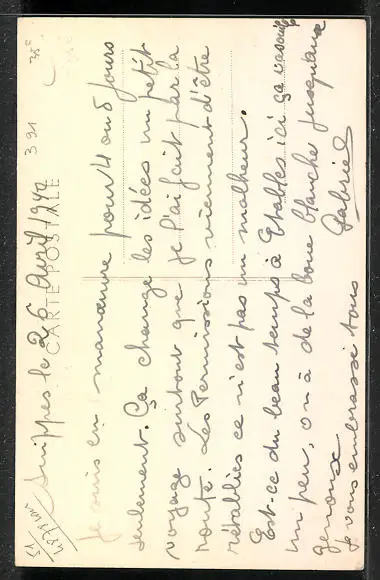 CARTE POSTALE
Suippes le 26 Avril 1940
Je suis en manœuvre pour 4 ou 5 jours
seulement. Ça change les idées un petit
voyage surtout que je l'ai fait par la
route. Les Permissions viennent d'être
rétablies ce n'est pas un malheur.
Est-ce du beau temps à Etables ici ça
un peu, on a de la boue blanche jusqu'aux
genoux
je vous embrasse tous
Gabriel
391